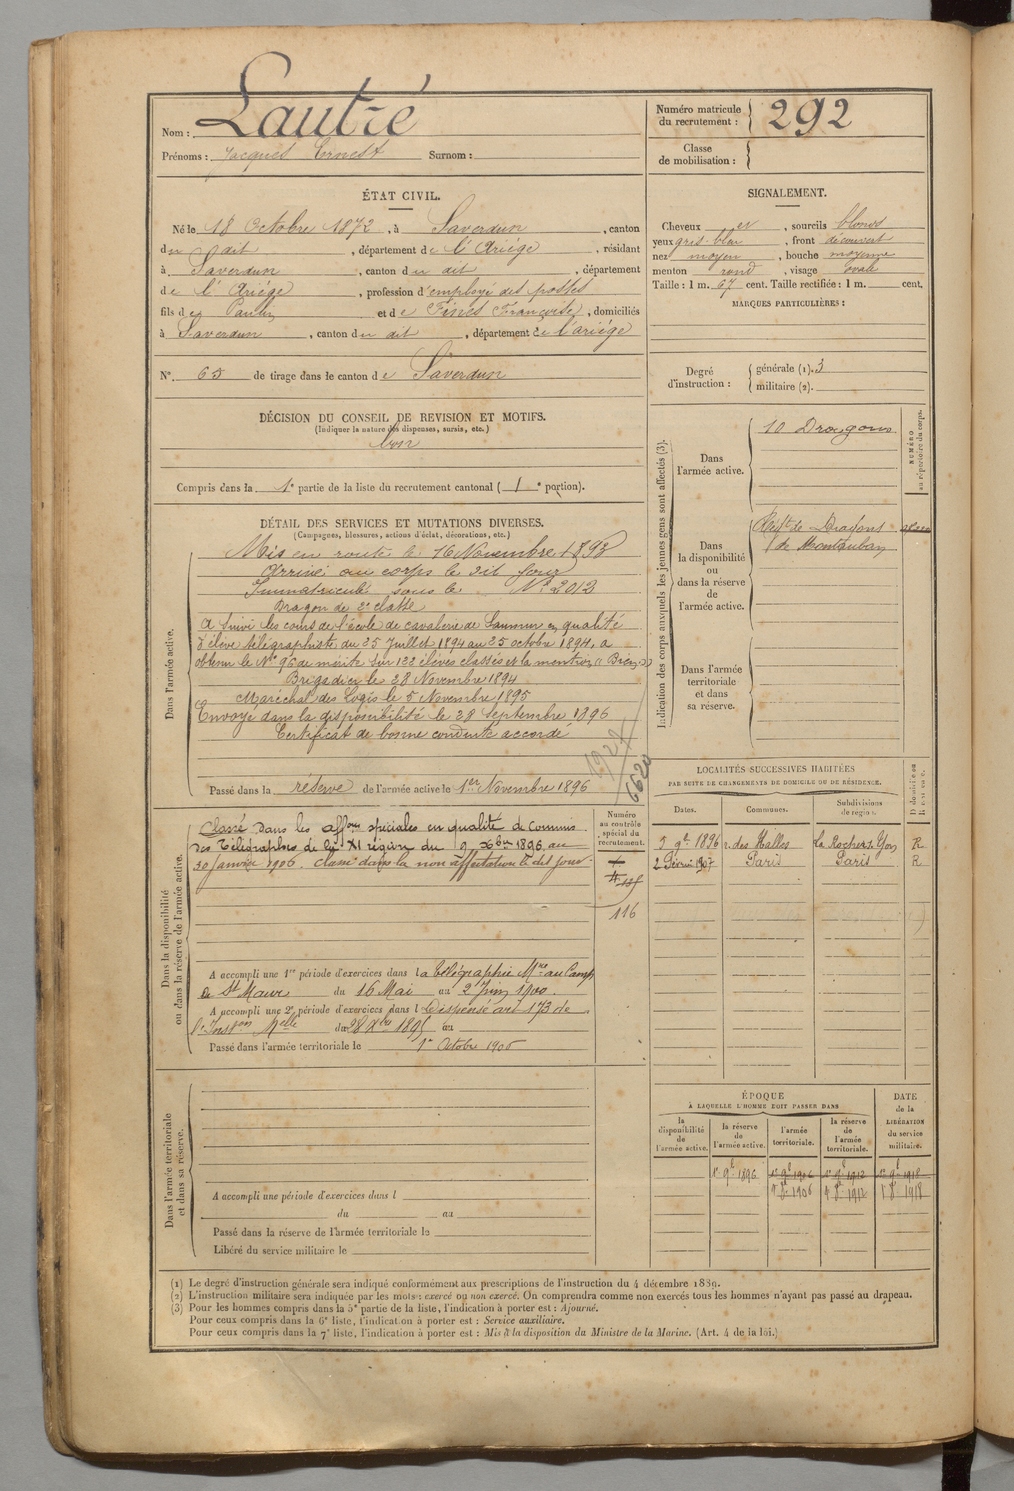 Nom : Lautré
Prénoms : Jacques Ernest Surnom :
Numéro matricule du recrutement : 292
Classe de mobilisation :
ÉTAT CIVIL.
Né le 18 Octobre 1872, à Saverdun, canton
du dit, département de l'Ariége, résidant
à Saverdun, canton du dit, département
de l'Ariége, profession d'employé des postes
fils de Paulin et de Fines Françoise, domiciliés
à Saverdun, canton du dit, département de l'ariége
N° 65 de tirage dans le canton de Saverdun
SIGNALEMENT.
Cheveux et, sourcils blonds
yeux gris-bleu, front découvert
nez moyen, bouche moyenne
menton rond, visage ovale
Taille : 1 m. 67 cent. Taille rectifiée : 1 m. cent.
MARQUES PARTICULIÈRES :
Degré d'instruction : générale (1). 3
militaire (2).
DÉCISION DU CONSEIL DE REVISION ET MOTIFS.
(Indiquer la nature des dispenses, sursis, etc.)
Bon
Compris dans la 1e partie de la liste du recrutement cantonal (1e portion).
DÉTAIL DES SERVICES ET MUTATIONS DIVERSES.
(Campagnes, blessures, actions d'éclat, décorations, etc.)
Dans l'armée active.
Mis en route le 16 Novembre 1893
Arrivé au corps le dit jour
Immatriculé sous le N° 2013
Dragon de 2e classe
A suivi les cours de l'école de cavalerie de Saumur en qualité
d'élève télégraphiste du 25 Juillet 1894 au 25 octobre 1894, a
obtenu le N° 96 de mérite sur 122 élèves classés et la mention (Bien)
Brigadier le 28 Novembre 1894
Maréchal des Logis le 5 Novembre 1895
Envoyé dans la disponibilité le 28 Septembre 1896
Certificat de bonne conduite accordé
6620
Passé dans la réserve de l'armée active le 1er Novembre 1896
Indication des corps auxquels les jeunes gens sont affectés (3).
NUMÉRO au répertoire du corps.
Dans l'armée active.
10 Dragons
Dans la disponibilité ou dans la réserve de l'armée active.
de Dragons
de Montauban
Dans l'armée territoriale et dans sa réserve.
Dans la disponibilité ou dans la réserve de l'armée active.
Numéro au contrôle spécial du recrutement.
Classé dans les affons spéciales en qualité de commis
des Télégraphes de la XI région du 9 Xbre 1896 au
30 janvier 1906. Classé dans la non affectation le dit jour.
116
A accompli une 1re période d'exercices dans la télégraphie Mre au Camp
de St Maur du 16 Mai au 2 Juin 1900.
A accompli une 2e période d'exercices dans l Dispensé art 173 de
l'Inston Melle du 28 Xbre 1895 au
Passé dans l'armée territoriale le 1er Octobre 1906
LOCALITÉS SUCCESSIVES HABITÉES
PAR SUITE DE CHANGEMENTS DE DOMICILE OU DE RÉSIDENCE.
Dates. Communes. Subdivisions de région. D domicile ou R résidence.
5 9bre 1896 r. des Halles La Roche s. Yon R
2 Février 1907 Paris Paris R
Dans l'armée territoriale et dans sa réserve.
A accompli une période d'exercices dans l
du au
Passé dans la réserve de l'armée territoriale le
Libéré du service militaire le
ÉPOQUE
A LAQUELLE L'HOMME DOIT PASSER DANS
DATE de la LIBÉRATION du service militaire.
la disponibilité de l'armée active. la réserve de l'armée active. l'armée territoriale. la réserve de l'armée territoriale.
1er 9bre 1896 1er 9bre 1906 1er 9bre 1912 1er 9bre 1918
1 8bre 1906 1 8bre 1912 1 8bre 1918
(1) Le degré d'instruction générale sera indiqué conformément aux prescriptions de l'instruction du 4 décembre 1889.
(2) L'instruction militaire sera indiquée par les mots : exercé ou non exercé. On comprendra comme non exercés tous les hommes n'ayant pas passé au drapeau.
(3) Pour les hommes compris dans la 5e partie de la liste, l'indication à porter est : Ajourné.
Pour ceux compris dans la 6e liste, l'indication à porter est : Service auxiliaire.
Pour ceux compris dans la 7e liste, l'indication à porter est : Mis à la disposition du Ministre de la Marine. (Art. 4 de la loi.)